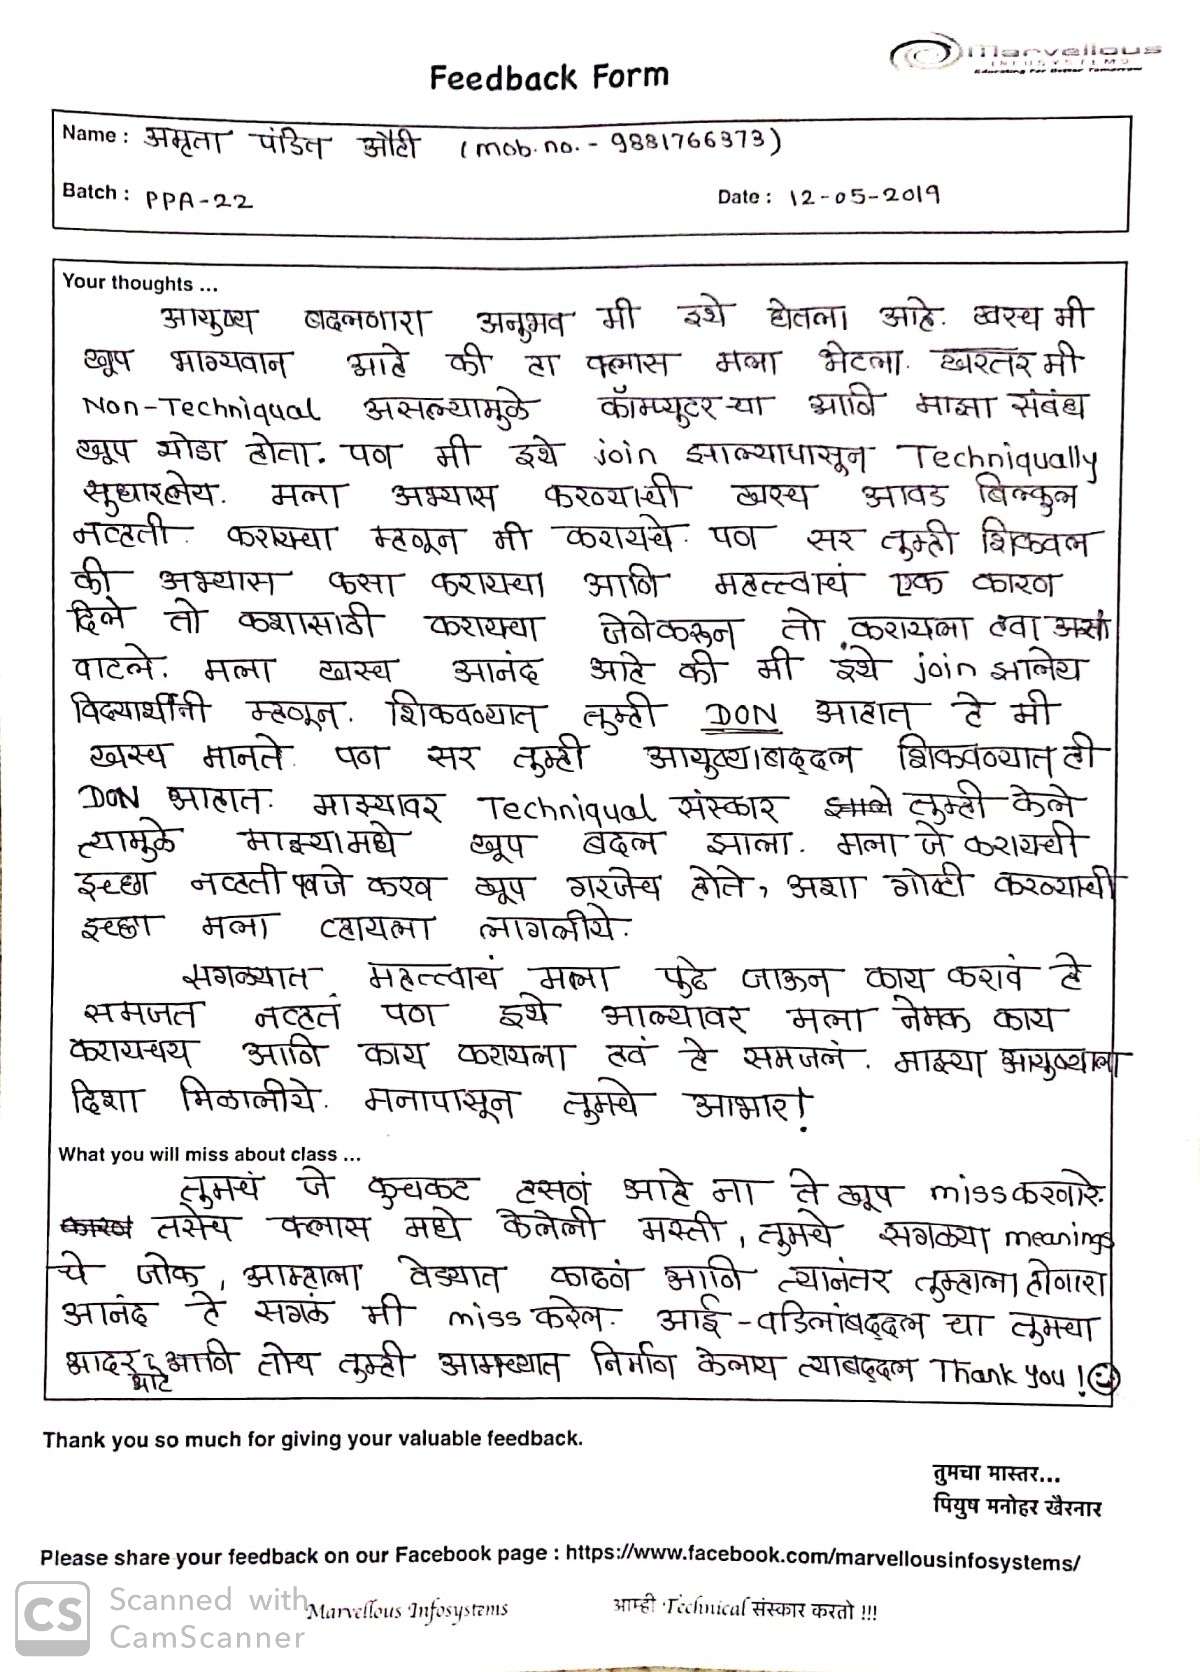 Marvellous
INFOSYSTEMS
Educating For Better Tomorrow
Feedback Form
Name : अमृता पंडित औटी (mob.no. - 9881766373)
Batch : PPA-22
Date : 12-05-2019
Your thoughts ...
आयुष्य बदलणारा अनुभव मी इथे घेतला आहे. खरच मी
खूप भाग्यवान आहे की हा क्लास मला भेटला. खरतर मी
Non-Techniqual असल्यामुळे कॉम्प्युटरचा आणि माझा संबंध
खूप थोडा होता. पण मी इथे join झाल्यापासून Techniqually
सुधारलेय. मला अभ्यास करण्याची खरच आवड बिल्कुल
नव्हती. करायचा म्हणून मी करायचे. पण सर तुम्ही शिकवल
की अभ्यास कसा करायचा आणि महत्त्वाचं एक कारण
दिले तो कशासाठी करायचा जेणेकरून तो करायला हवा असं
वाटले. मला खरच आनंद आहे की मी इथे join झालेय
विद्यार्थीनी म्हणून. शिकवण्यात तुम्ही DON आहात हे मी
खरच मानते. पण सर तुम्ही आयुष्याबद्दल शिकवण्यात ही
DON आहात. माझ्यावर Techniqual संस्कार तुम्ही केले
त्यामुळे माझ्यामधे खूप बदल झाला. मला जे करायची
इच्छा नव्हती जे करव खूप गरजेच होते, अशा गोष्टी करण्याची
इच्छा मला व्हायला लागलीये.
सगळ्यात महत्त्वाचं मला पुढे जाऊन काय करावं हे
समजत नव्हतं पण इथे आल्यावर मला नेमक काय
करायचय आणि काय करायला हवं हे समजलं. माझ्या आयुष्याला
दिशा मिळालीये. मनापासून तुमचे आभार!
What you will miss about class ...
तुमचं जे कुचकट हसणं आहे ना ते खूप miss करणारे.
तसेच क्लास मधे केलेली मस्ती, तुमचे सगळ्या meanings
चे जोक, आम्हाला वेड्यात काढणं आणि त्यानंतर तुम्हाला होणारा
आनंद हे सगळं मी miss करेल. आई-वडिलांबद्दल चा तुमचा
आदर आहे आणि तोच तुम्ही आमच्यात निर्माण केलाय त्याबद्दल Thank you !
Thank you so much for giving your valuable feedback.
तुमचा मास्तर...
पियुष मनोहर खैरनार
Please share your feedback on our Facebook page : https://www.facebook.com/marvellousinfosystems/
Marvellous Infosystems
आम्ही Technical संस्कार करतो !!!
CS
Scanned with
CamScanner